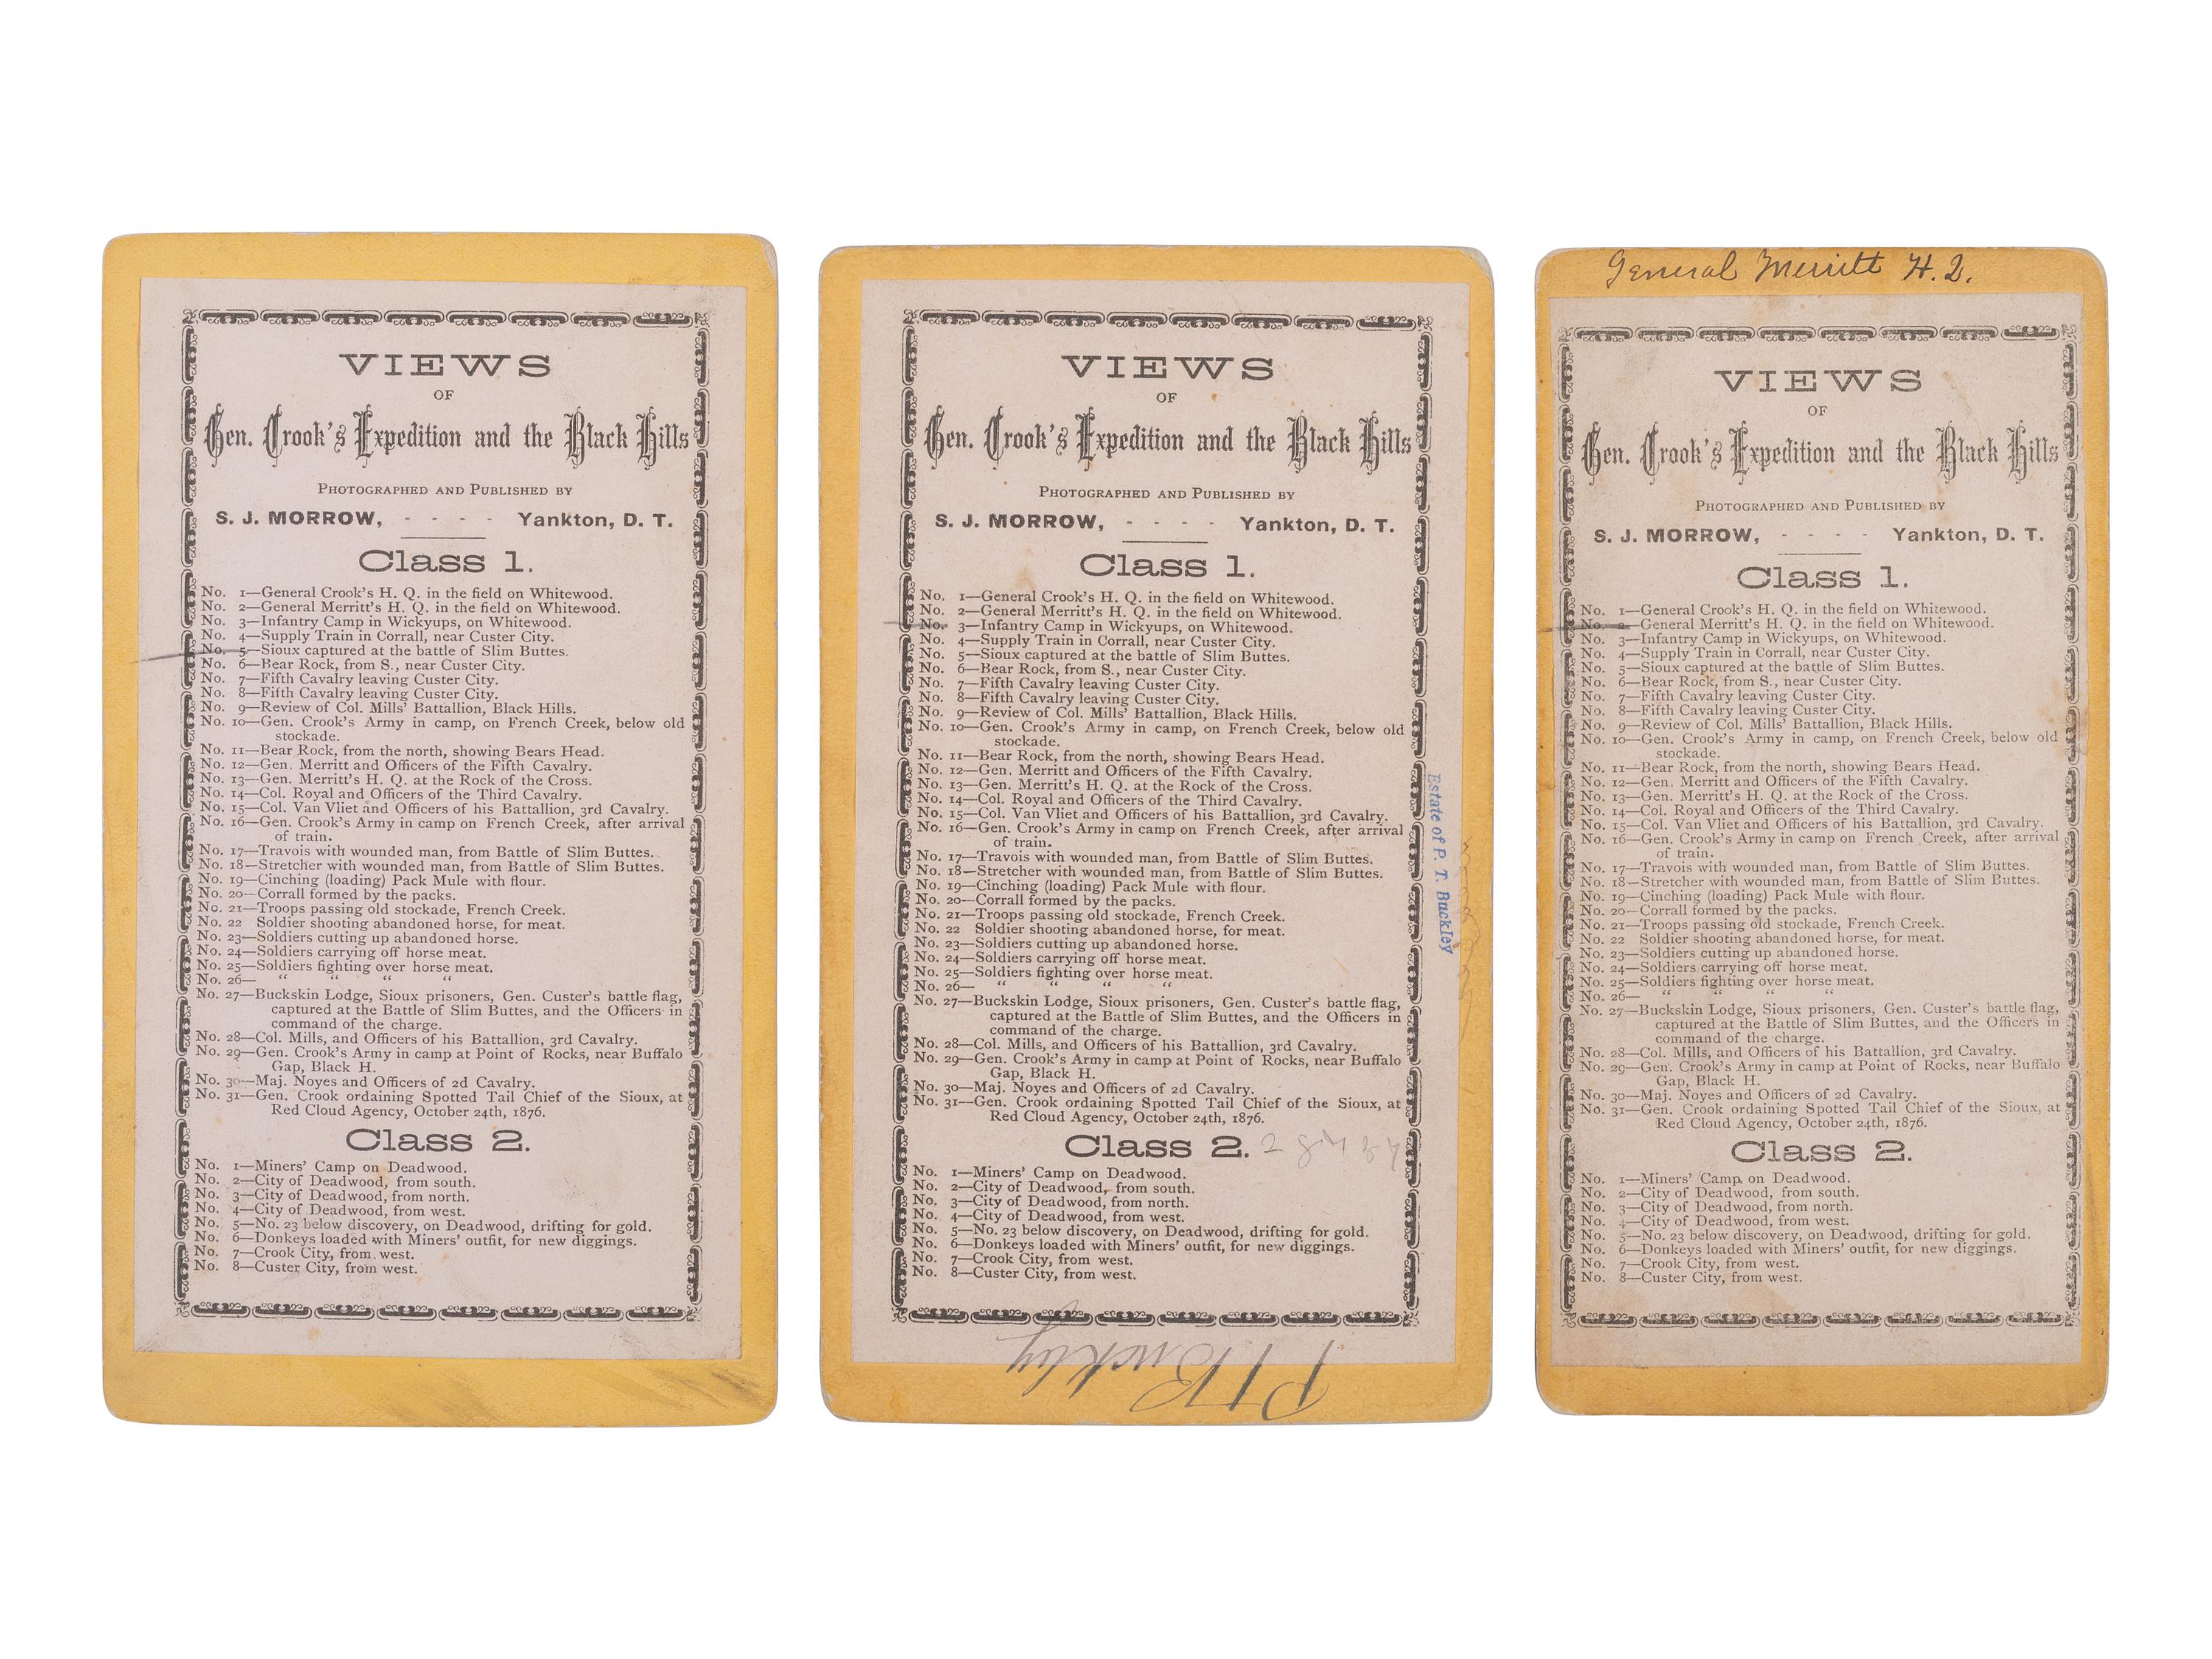 VIEWS
OF
Gen. Crook's Expedition and the Black Hills
PHOTOGRAPHED AND PUBLISHED BY
S. J. MORROW, - - - - Yankton, D. T.
Class 1.
No. 1—General Crook's H. Q. in the field on Whitewood.
No. 2—General Merritt's H. Q. in the field on Whitewood.
No. 3—Infantry Camp in Wickyups, on Whitewood.
No. 4—Supply Train in Corrall, near Custer City.
No. 5—Sioux captured at the battle of Slim Buttes.
No. 6—Bear Rock, from S., near Custer City.
No. 7—Fifth Cavalry leaving Custer City.
No. 8—Fifth Cavalry leaving Custer City.
No. 9—Review of Col. Mills' Battallion, Black Hills.
No. 10—Gen. Crook's Army in camp, on French Creek, below old
stockade.
No. 11—Bear Rock, from the north, showing Bears Head.
No. 12—Gen. Merritt and Officers of the Fifth Cavalry.
No. 13—Gen. Merritt's H. Q. at the Rock of the Cross.
No. 14—Col. Royal and Officers of the Third Cavalry.
No. 15—Col. Van Vliet and Officers of his Battallion, 3rd Cavalry.
No. 16—Gen. Crook's Army in camp on French Creek, after arrival
of train.
No. 17—Travois with wounded man, from Battle of Slim Buttes.
No. 18—Stretcher with wounded man, from Battle of Slim Buttes.
No. 19—Cinching (loading) Pack Mule with flour.
No. 20—Corrall formed by the packs.
No. 21—Troops passing old stockade, French Creek.
No. 22 Soldier shooting abandoned horse, for meat.
No. 23—Soldiers cutting up abandoned horse.
No. 24—Soldiers carrying off horse meat.
No. 25—Soldiers fighting over horse meat.
No. 26— “ “ “ “
No. 27—Buckskin Lodge, Sioux prisoners, Gen. Custer's battle flag,
captured at the Battle of Slim Buttes, and the Officers in
command of the charge.
No. 28—Col. Mills, and Officers of his Battalion, 3rd Cavalry.
No. 29—Gen. Crook's Army in camp at Point of Rocks, near Buffalo
Gap, Black H.
No. 30—Maj. Noyes and Officers of 2d Cavalry.
No. 31—Gen. Crook ordaining Spotted Tail Chief of the Sioux, at
Red Cloud Agency, October 24th, 1876.
Class 2.
No. 1—Miners' Camp on Deadwood.
No. 2—City of Deadwood, from south.
No. 3—City of Deadwood, from north.
No. 4—City of Deadwood, from west.
No. 5—No. 23 below discovery, on Deadwood, drifting for gold.
No. 6—Donkeys loaded with Miners' outfit, for new diggings.
No. 7—Crook City, from west.
No. 8—Custer City, from west.
VIEWS
OF
Gen. Crook's Expedition and the Black Hills
PHOTOGRAPHED AND PUBLISHED BY
S. J. MORROW, - - - - Yankton, D. T.
Class 1.
No. 1—General Crook's H. Q. in the field on Whitewood.
No. 2—General Merritt's H. Q. in the field on Whitewood.
No. 3—Infantry Camp in Wickyups, on Whitewood.
No. 4—Supply Train in Corrall, near Custer City.
No. 5—Sioux captured at the battle of Slim Buttes.
No. 6—Bear Rock, from S., near Custer City.
No. 7—Fifth Cavalry leaving Custer City.
No. 8—Fifth Cavalry leaving Custer City.
No. 9—Review of Col. Mills' Battallion, Black Hills.
No. 10—Gen. Crook's Army in camp, on French Creek, below old
stockade.
No. 11—Bear Rock, from the north, showing Bears Head.
No. 12—Gen. Merritt and Officers of the Fifth Cavalry.
No. 13—Gen. Merritt's H. Q. at the Rock of the Cross.
No. 14—Col. Royal and Officers of the Third Cavalry.
No. 15—Col. Van Vliet and Officers of his Battallion, 3rd Cavalry.
No. 16—Gen. Crook's Army in camp on French Creek, after arrival
of train.
No. 17—Travois with wounded man, from Battle of Slim Buttes.
No. 18—Stretcher with wounded man, from Battle of Slim Buttes.
No. 19—Cinching (loading) Pack Mule with flour.
No. 20—Corrall formed by the packs.
No. 21—Troops passing old stockade, French Creek.
No. 22 Soldier shooting abandoned horse, for meat.
No. 23—Soldiers cutting up abandoned horse.
No. 24—Soldiers carrying off horse meat.
No. 25—Soldiers fighting over horse meat.
No. 26— “ “ “ “
No. 27—Buckskin Lodge, Sioux prisoners, Gen. Custer's battle flag,
captured at the Battle of Slim Buttes, and the Officers in
command of the charge.
No. 28—Col. Mills, and Officers of his Battalion, 3rd Cavalry.
No. 29—Gen. Crook's Army in camp at Point of Rocks, near Buffalo
Gap, Black H.
No. 30—Maj. Noyes and Officers of 2d Cavalry.
No. 31—Gen. Crook ordaining Spotted Tail Chief of the Sioux, at
Red Cloud Agency, October 24th, 1876.
Class 2.
No. 1—Miners' Camp on Deadwood.
No. 2—City of Deadwood, from south.
No. 3—City of Deadwood, from north.
No. 4—City of Deadwood, from west.
No. 5—No. 23 below discovery, on Deadwood, drifting for gold.
No. 6—Donkeys loaded with Miners' outfit, for new diggings.
No. 7—Crook City, from west.
No. 8—Custer City, from west.
Estate of P. T. Buckley
P T Buckley
General Merritt H. Q.
VIEWS
OF
Gen. Crook's Expedition and the Black Hills
PHOTOGRAPHED AND PUBLISHED BY
S. J. MORROW, - - - - Yankton, D. T.
Class 1.
No. 1—General Crook's H. Q. in the field on Whitewood.
No. 2—General Merritt's H. Q. in the field on Whitewood.
No. 3—Infantry Camp in Wickyups, on Whitewood.
No. 4—Supply Train in Corrall, near Custer City.
No. 5—Sioux captured at the battle of Slim Buttes.
No. 6—Bear Rock, from S., near Custer City.
No. 7—Fifth Cavalry leaving Custer City.
No. 8—Fifth Cavalry leaving Custer City.
No. 9—Review of Col. Mills' Battallion, Black Hills.
No. 10—Gen. Crook's Army in camp, on French Creek, below old
stockade.
No. 11—Bear Rock, from the north, showing Bears Head.
No. 12—Gen. Merritt and Officers of the Fifth Cavalry.
No. 13—Gen. Merritt's H. Q. at the Rock of the Cross.
No. 14—Col. Royal and Officers of the Third Cavalry.
No. 15—Col. Van Vliet and Officers of his Battallion, 3rd Cavalry.
No. 16—Gen. Crook's Army in camp on French Creek, after arrival
of train.
No. 17—Travois with wounded man, from Battle of Slim Buttes.
No. 18—Stretcher with wounded man, from Battle of Slim Buttes.
No. 19—Cinching (loading) Pack Mule with flour.
No. 20—Corrall formed by the packs.
No. 21—Troops passing old stockade, French Creek.
No. 22 Soldier shooting abandoned horse, for meat.
No. 23—Soldiers cutting up abandoned horse.
No. 24—Soldiers carrying off horse meat.
No. 25—Soldiers fighting over horse meat.
No. 26— “ “ “ “
No. 27—Buckskin Lodge, Sioux prisoners, Gen. Custer's battle flag,
captured at the Battle of Slim Buttes, and the Officers in
command of the charge.
No. 28—Col. Mills, and Officers of his Battalion, 3rd Cavalry.
No. 29—Gen. Crook's Army in camp at Point of Rocks, near Buffalo
Gap, Black H.
No. 30—Maj. Noyes and Officers of 2d Cavalry.
No. 31—Gen. Crook ordaining Spotted Tail Chief of the Sioux, at
Red Cloud Agency, October 24th, 1876.
Class 2.
No. 1—Miners' Camp on Deadwood.
No. 2—City of Deadwood, from south.
No. 3—City of Deadwood, from north.
No. 4—City of Deadwood, from west.
No. 5—No. 23 below discovery, on Deadwood, drifting for gold.
No. 6—Donkeys loaded with Miners' outfit, for new diggings.
No. 7—Crook City, from west.
No. 8—Custer City, from west.